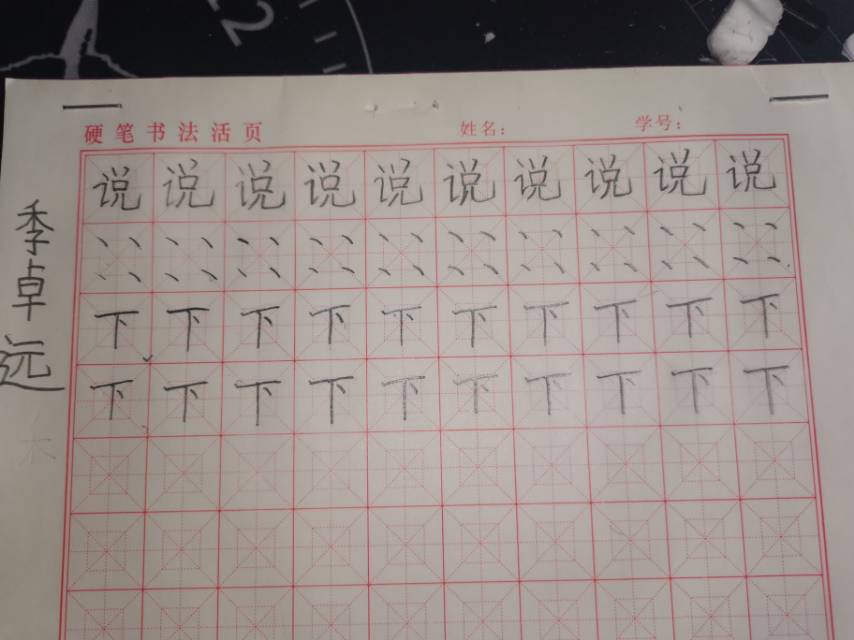 硬笔书法活页 姓名： 学号：
说说说说说说说说说说
丶丶丶丶丶丶丶丶丶丶丶丶丶丶丶丶丶丶丶丶丶丶丶丶丶丶丶丶丶丶丶丶丶丶丶丶丶丶丶丶
下下下下下下下下下下
下下下下下下下下下下
季卓远
木